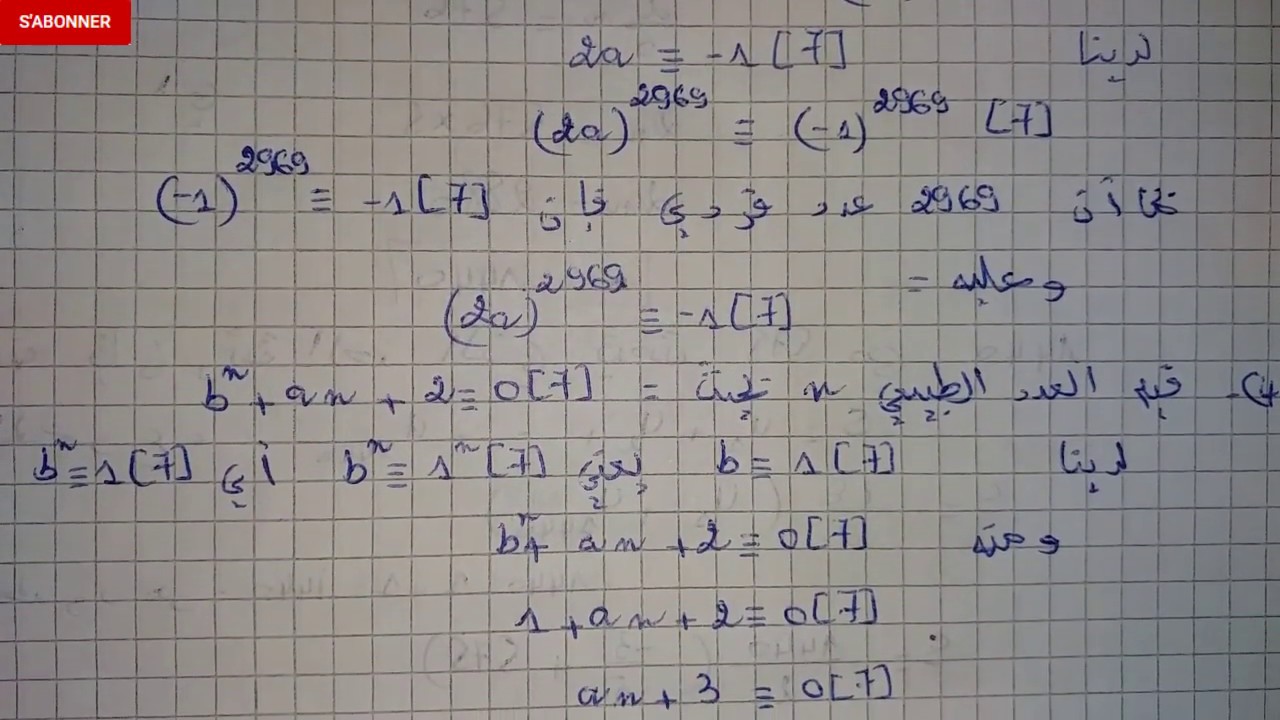 S'ABONNER
لدينا 2a ≡ -1 [7]
(2a)^2969 ≡ (-1)^2969 [7]
بما أن 2969 عدد فردي فإن (-1)^2969 ≡ -1 [7]
وعليه = (2a)^2969 ≡ -1 [7]
4)- قيم العدد الطبيعي n حيث = b^n + an + 2 ≡ 0 [7]
لدينا b ≡ 1 [7] يعني b^n ≡ 1^n [7] أي b^n ≡ 1 [7]
ومنه b^n + an + 2 ≡ 0 [7]
1 + an + 2 ≡ 0 [7]
an + 3 ≡ 0 [7]